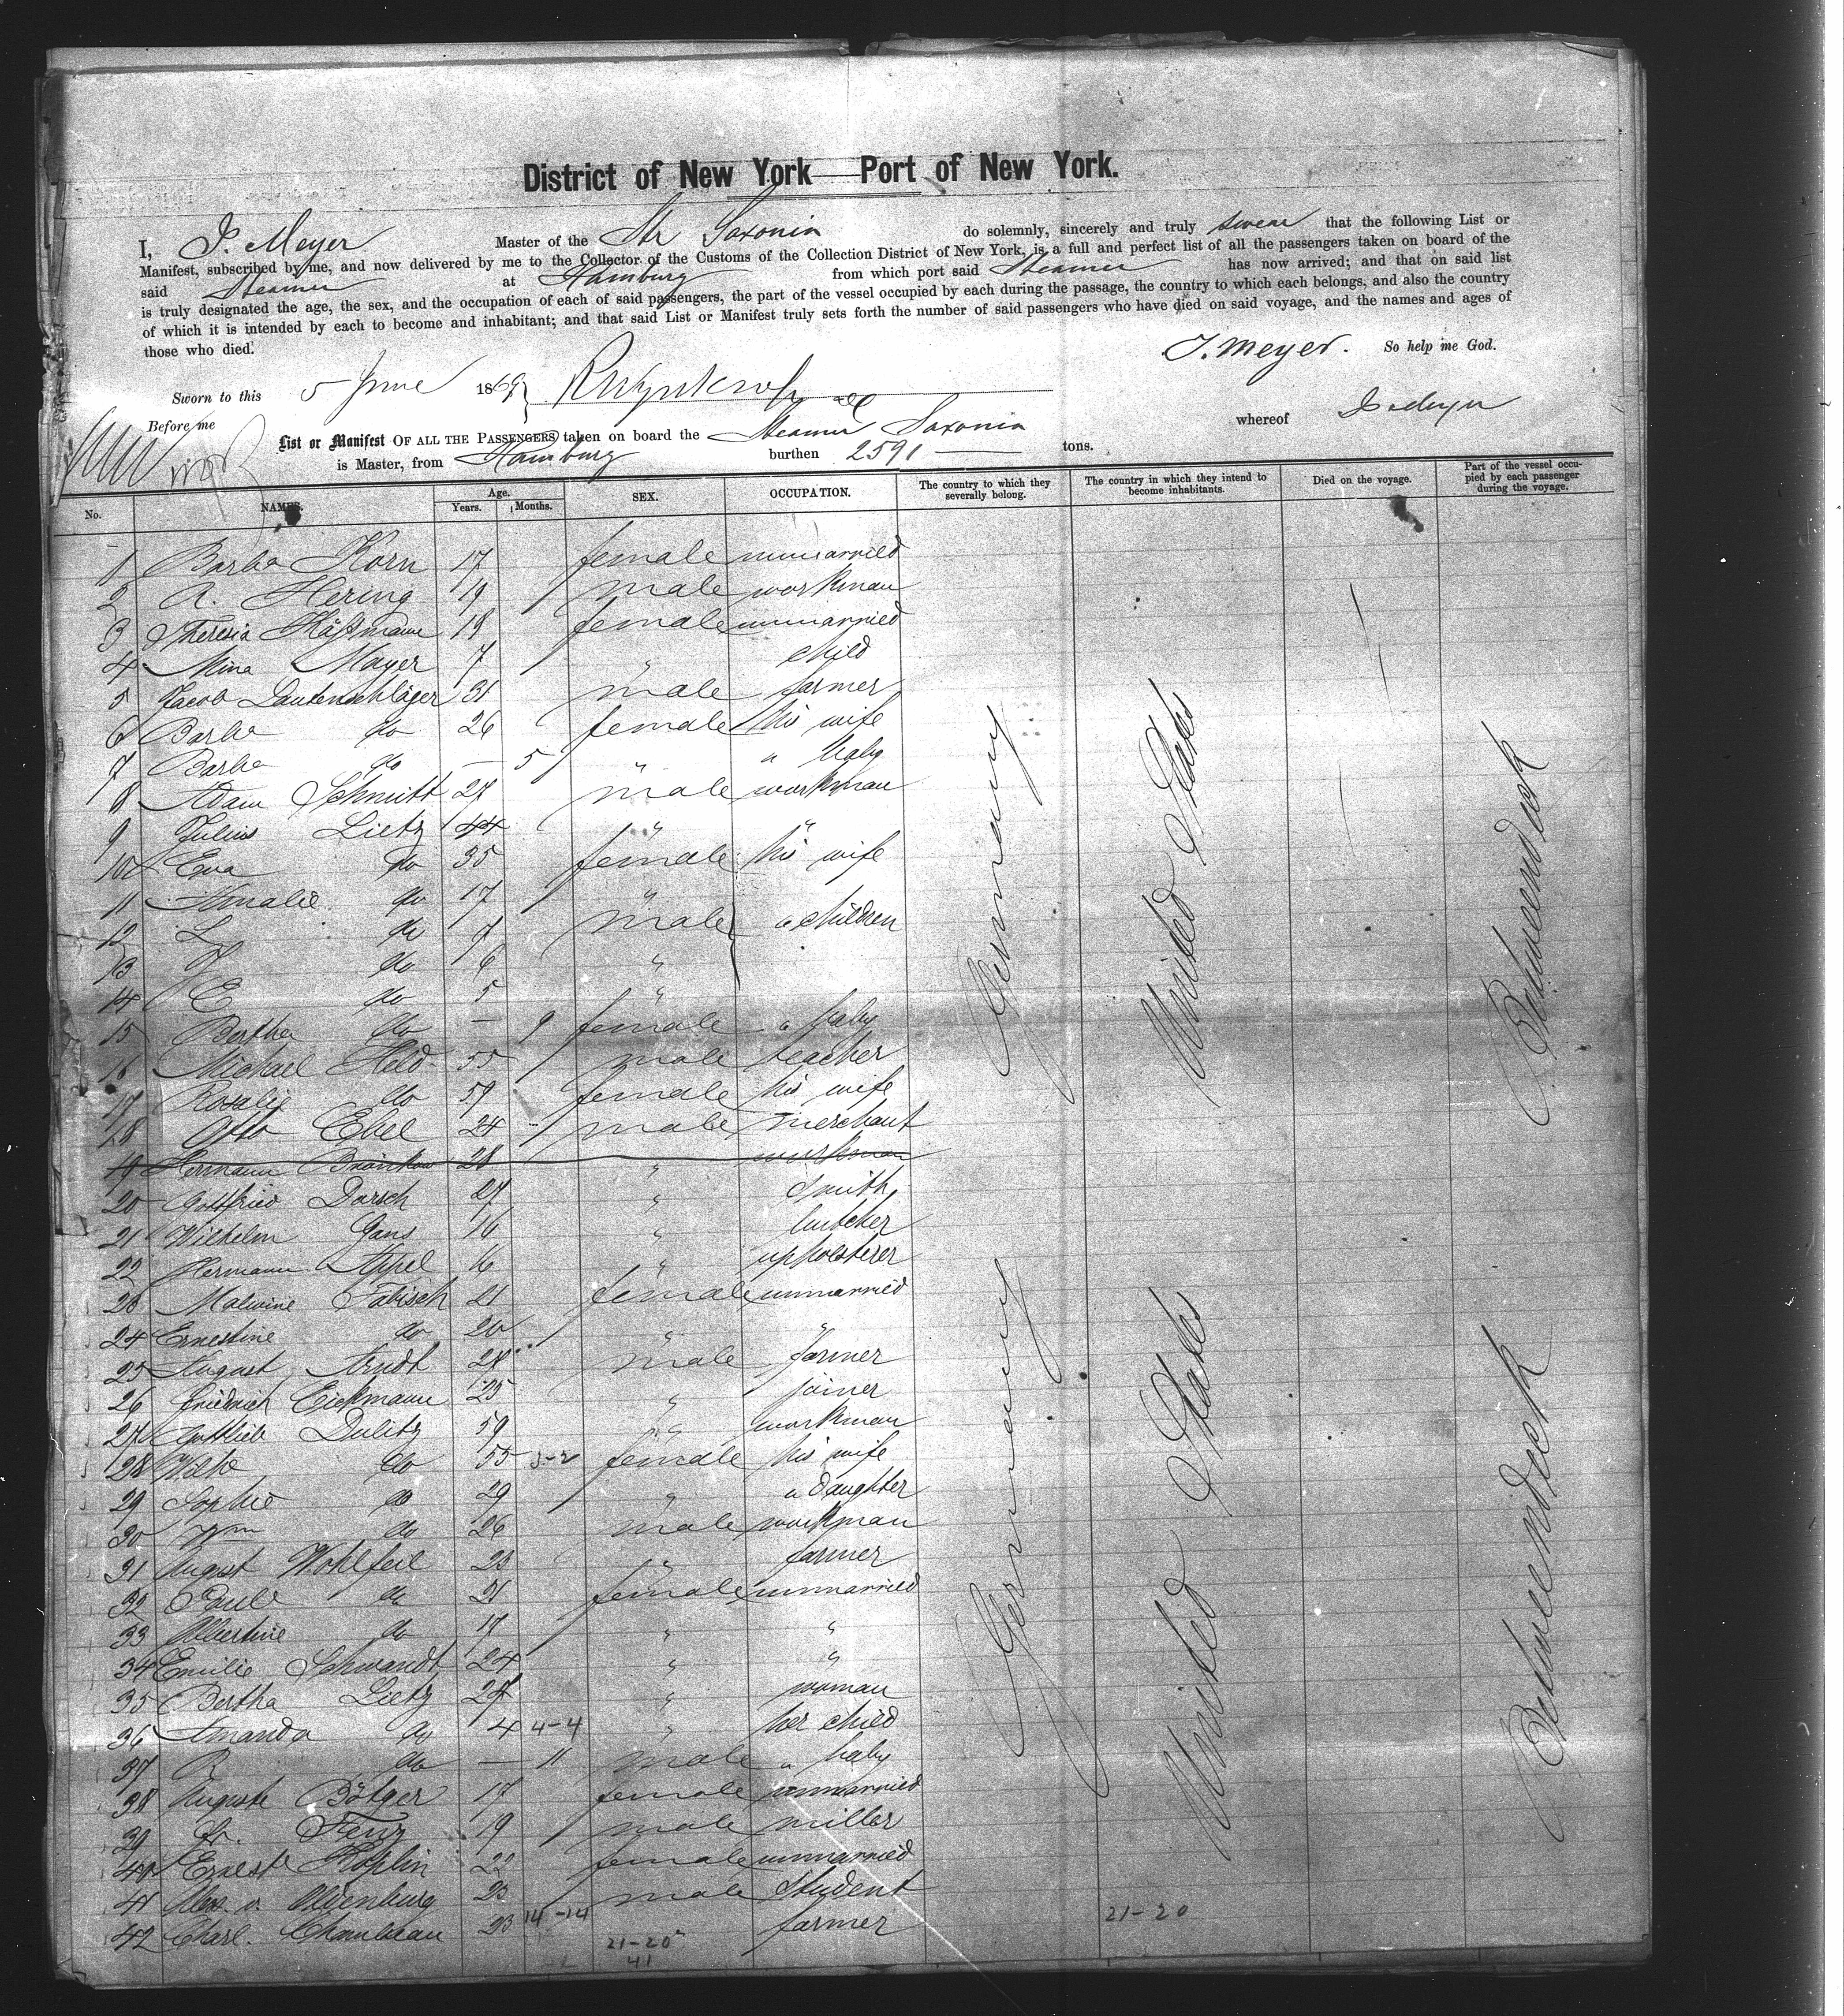 District of New York — Port of New York.
I, J. Meyer Master of the Str Saxonia do solemnly, sincerely and truly swear that the following List or
Manifest, subscribed by me, and now delivered by me to the Collector of the Customs of the Collection District of New York, is a full and perfect list of all the passengers taken on board of the
said Steamer at Hamburg from which port said Steamer has now arrived; and that on said list
is truly designated the age, the sex, and the occupation of each of said passengers, the part of the vessel occupied by each during the passage, the country to which each belongs, and also the country
of which it is intended by each to become and inhabitant; and that said List or Manifest truly sets forth the number of said passengers who have died on said voyage, and the names and ages of
those who died.
J. Meyer. So help me God.
Sworn to this 5 June 1869
Before me
List or Manifest OF ALL THE PASSENGERS taken on board the Steamer Saxonia whereof J. Meyer
is Master, from Hamburg burthen 2591 — tons.
No. NAMES. Age. Years. Months. SEX. OCCUPATION. The country to which they severally belong. The country in which they intend to become inhabitants. Died on the voyage. Part of the vessel occupied by each passenger during the voyage.
1 Barba Korn 17 female unmarried
2 A. Hering 19 male workman
3 Theresia 18 female unmarried
4 Mina Mayer 7 " child
5 Jacob Lautenschläger 31 male farmer
6 Barba do 26 female his wife
7 Barba do — 5 " " baby
8 Adam Schmitt 27 male workman
9 Julius Lietz 44 " "
10 Eva do 35 female his wife
11 Amalie do 17 "
12 L do 7 male " children
13 do 6 "
14 E do 5 "
15 Bertha do — 9 female " baby
16 Michael Held 55 male teacher
17 Rosalie do 59 female his wife
18 Otto Ebel 24 male merchant
19 Hermann 28 " workman
20 Gottfried Dorsch 27 " smith
21 Wilhelm Gans 16 " butcher
22 Hermann Appel 16 " upholsterer
23 Malwine Fabisch 21 female unmarried
24 Ernestine do 20 " "
25 August Arndt 28 male farmer
26 Friedrich Eickmann 25 " joiner
27 Gottlieb Dulitz 59 " workman
28 do 55 female his wife
29 Sophie do 29 " " daughter
30 Wm do 26 male workman
31 August Wohlfeil 23 " farmer
32 Paule do 21 female unmarried
33 Albertine do 17 " "
34 Emilie Schwandt 24 " "
35 Bertha Lietz 27 " woman
36 Amanda do 4 4-4 " her child
37 R do — 11 male " baby
38 Auguste Bötger 17 female unmarried
39 Fr. 19 male miller
40 Ernest Köplin 22 female unmarried
41 Alex. v. Oldenburg 23 male Student
42 Charl. 23 14-14 farmer
Germany United States Between deck
Germany United States Between deck
21-20 21-20
41